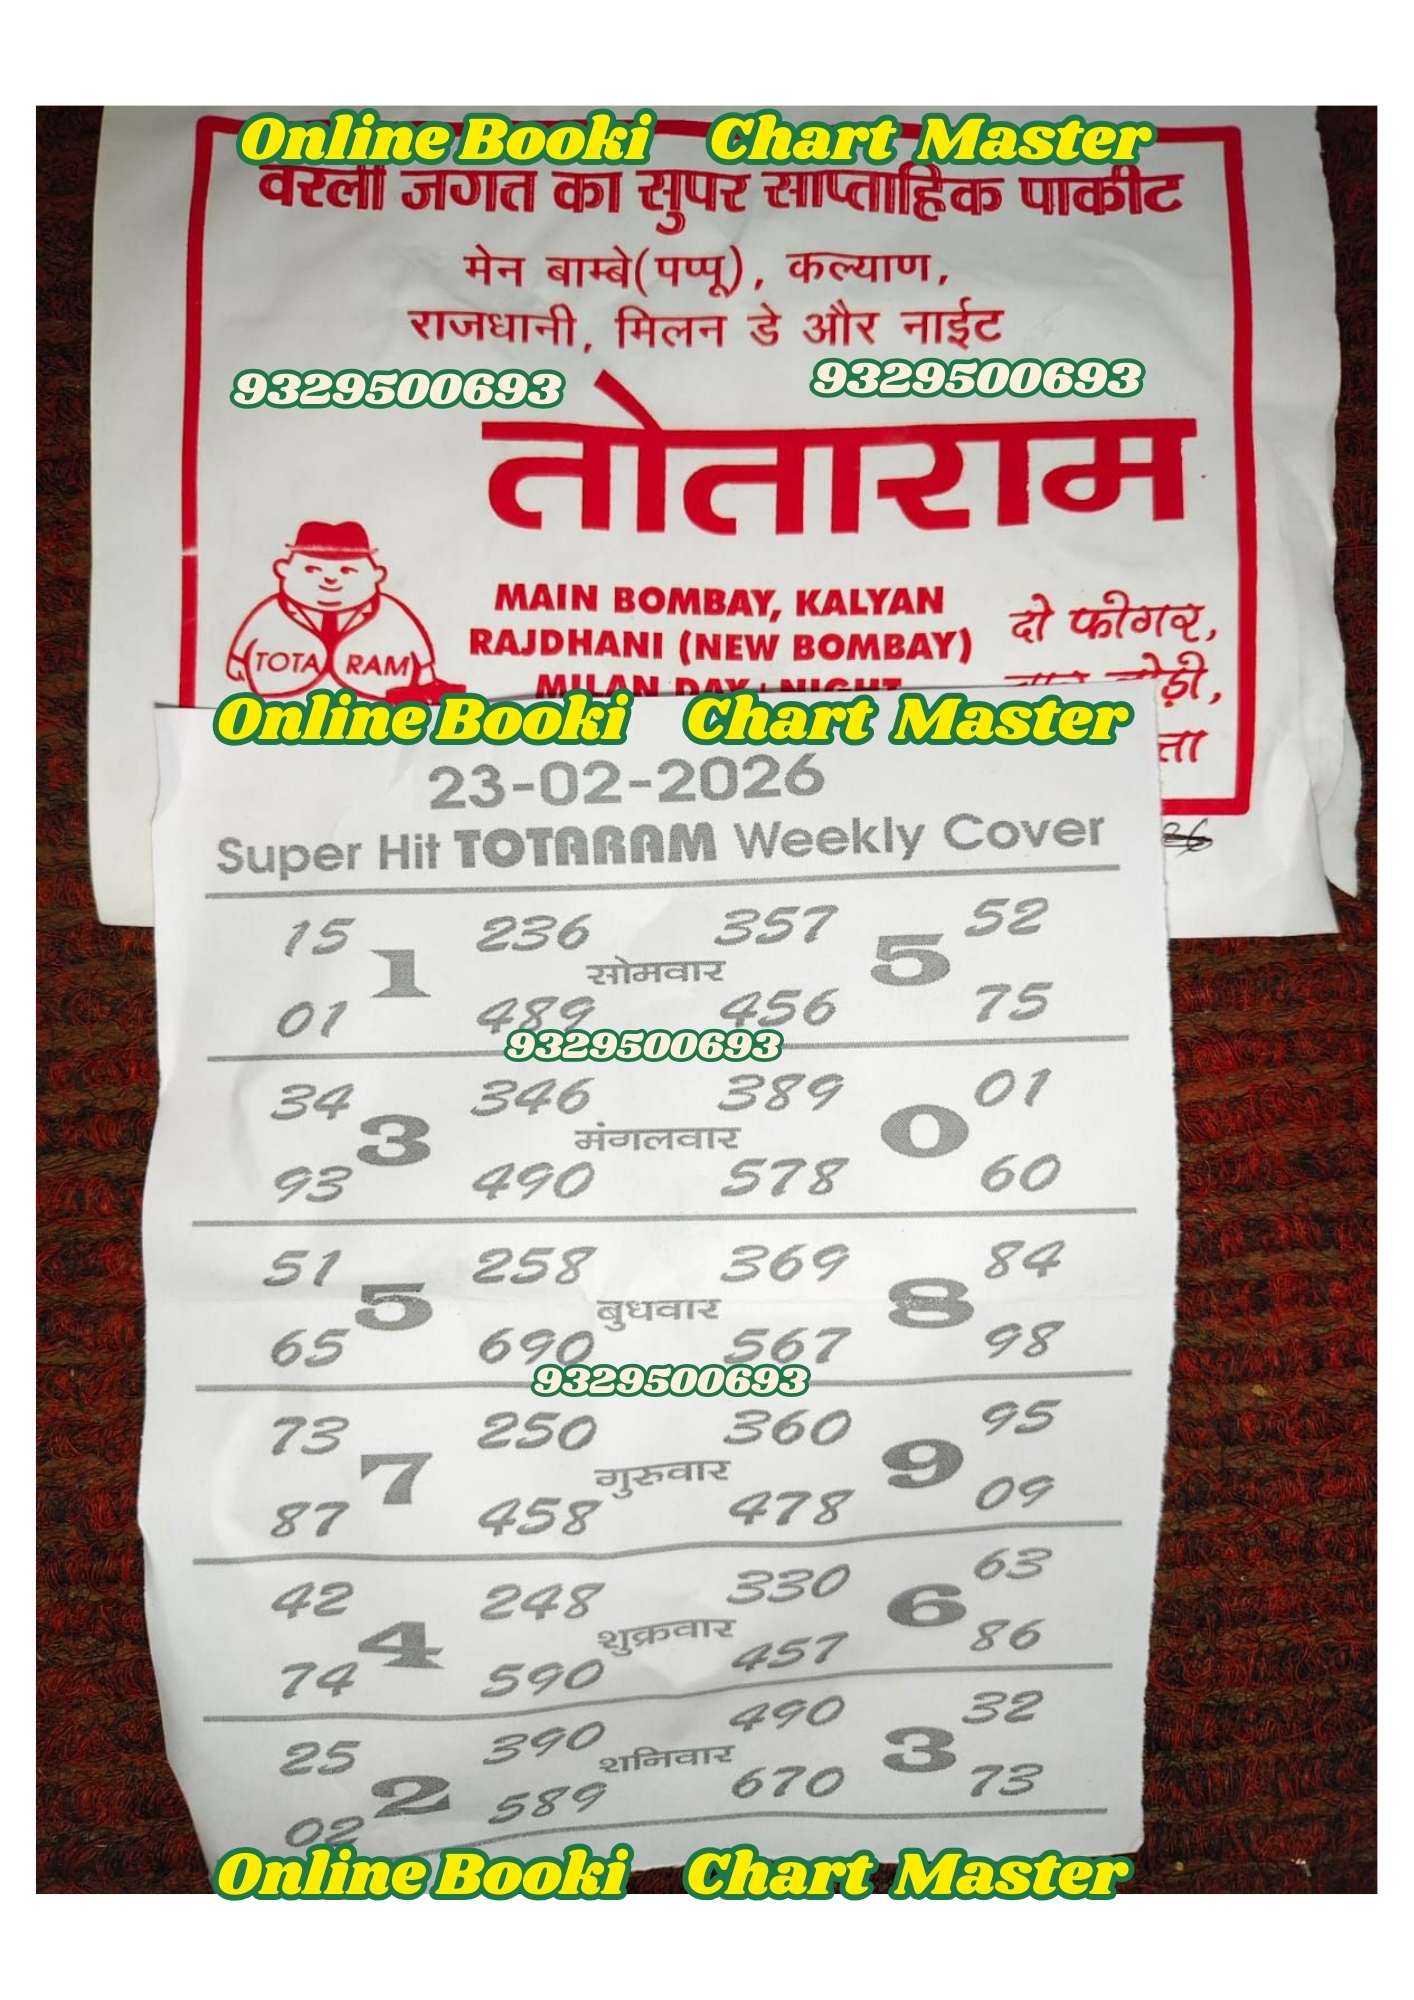 Online Booki Chart Master
वरली जगत का सुपर साप्ताहिक पाकीट
मेन बाम्बे(पप्पू), कल्याण,
राजधानी, मिलन डे और नाईट
9329500693 9329500693
तोताराम
TOTA RAM
MAIN BOMBAY, KALYAN
RAJDHANI (NEW BOMBAY)
MILAN DAY NIGHT
दो फीगर,
जोड़ी,
Online Booki Chart Master
23-02-2026
Super Hit TOTARAM Weekly Cover
15 236 357 52
1 सोमवार 5
01 489 456 75
9329500693
34 346 389 01
3 मंगलवार 0
93 490 578 60
51 258 369 84
5 बुधवार 8
65 690 567 98
9329500693
73 250 360 95
7 गुरुवार 9
87 458 478 09
42 248 330 63
4 शुक्रवार 6
74 590 457 86
25 390 490 32
2 शनिवार 3
02 589 670 73
Online Booki Chart Master